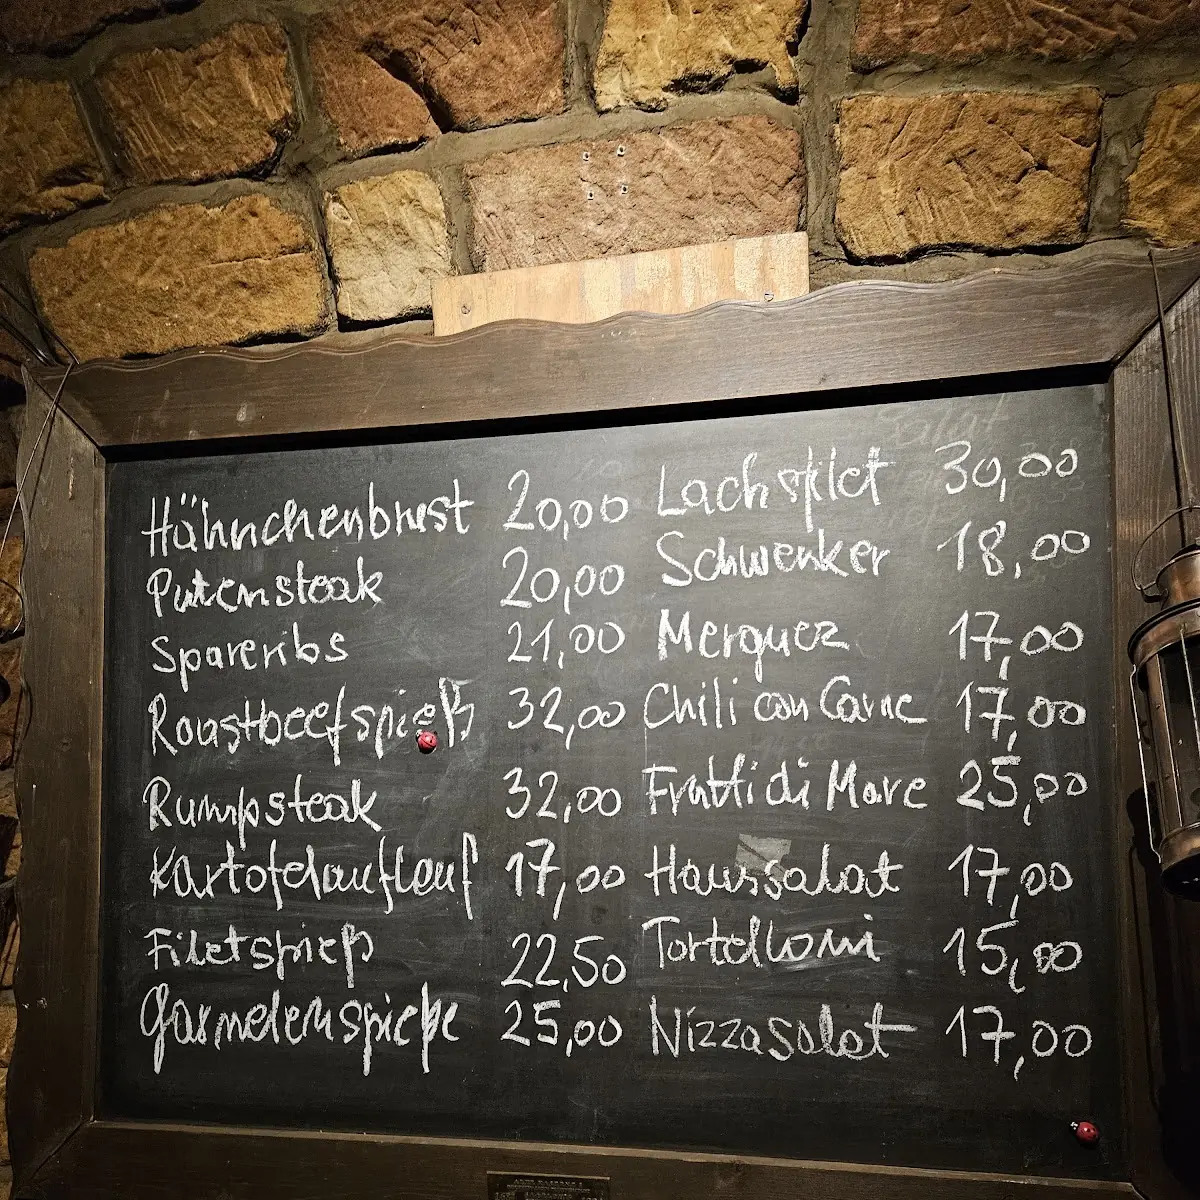 Hähnchenbrust 20,00
Putensteak 20,00
Spareribs 21,00
Roastbeefspieß 32,00
Rumpsteak 32,00
Kartofelauflauf 17,00
Filetspieß 22,50
Garnelenspieße 25,00
Lachsfilet 30,00
Schwenker 18,00
Merquez 17,00
Chili con Carne 17,00
Frutti di Mare 25,00
Haussalat 17,00
Tortelloni 15,00
Nizzasalat 17,00